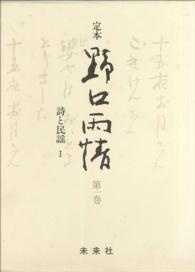 十五夜お月さん
ごきげんさん
定本
野口雨情
第一巻
詩と民謡 I
とりました
十五夜お月さん
未来社